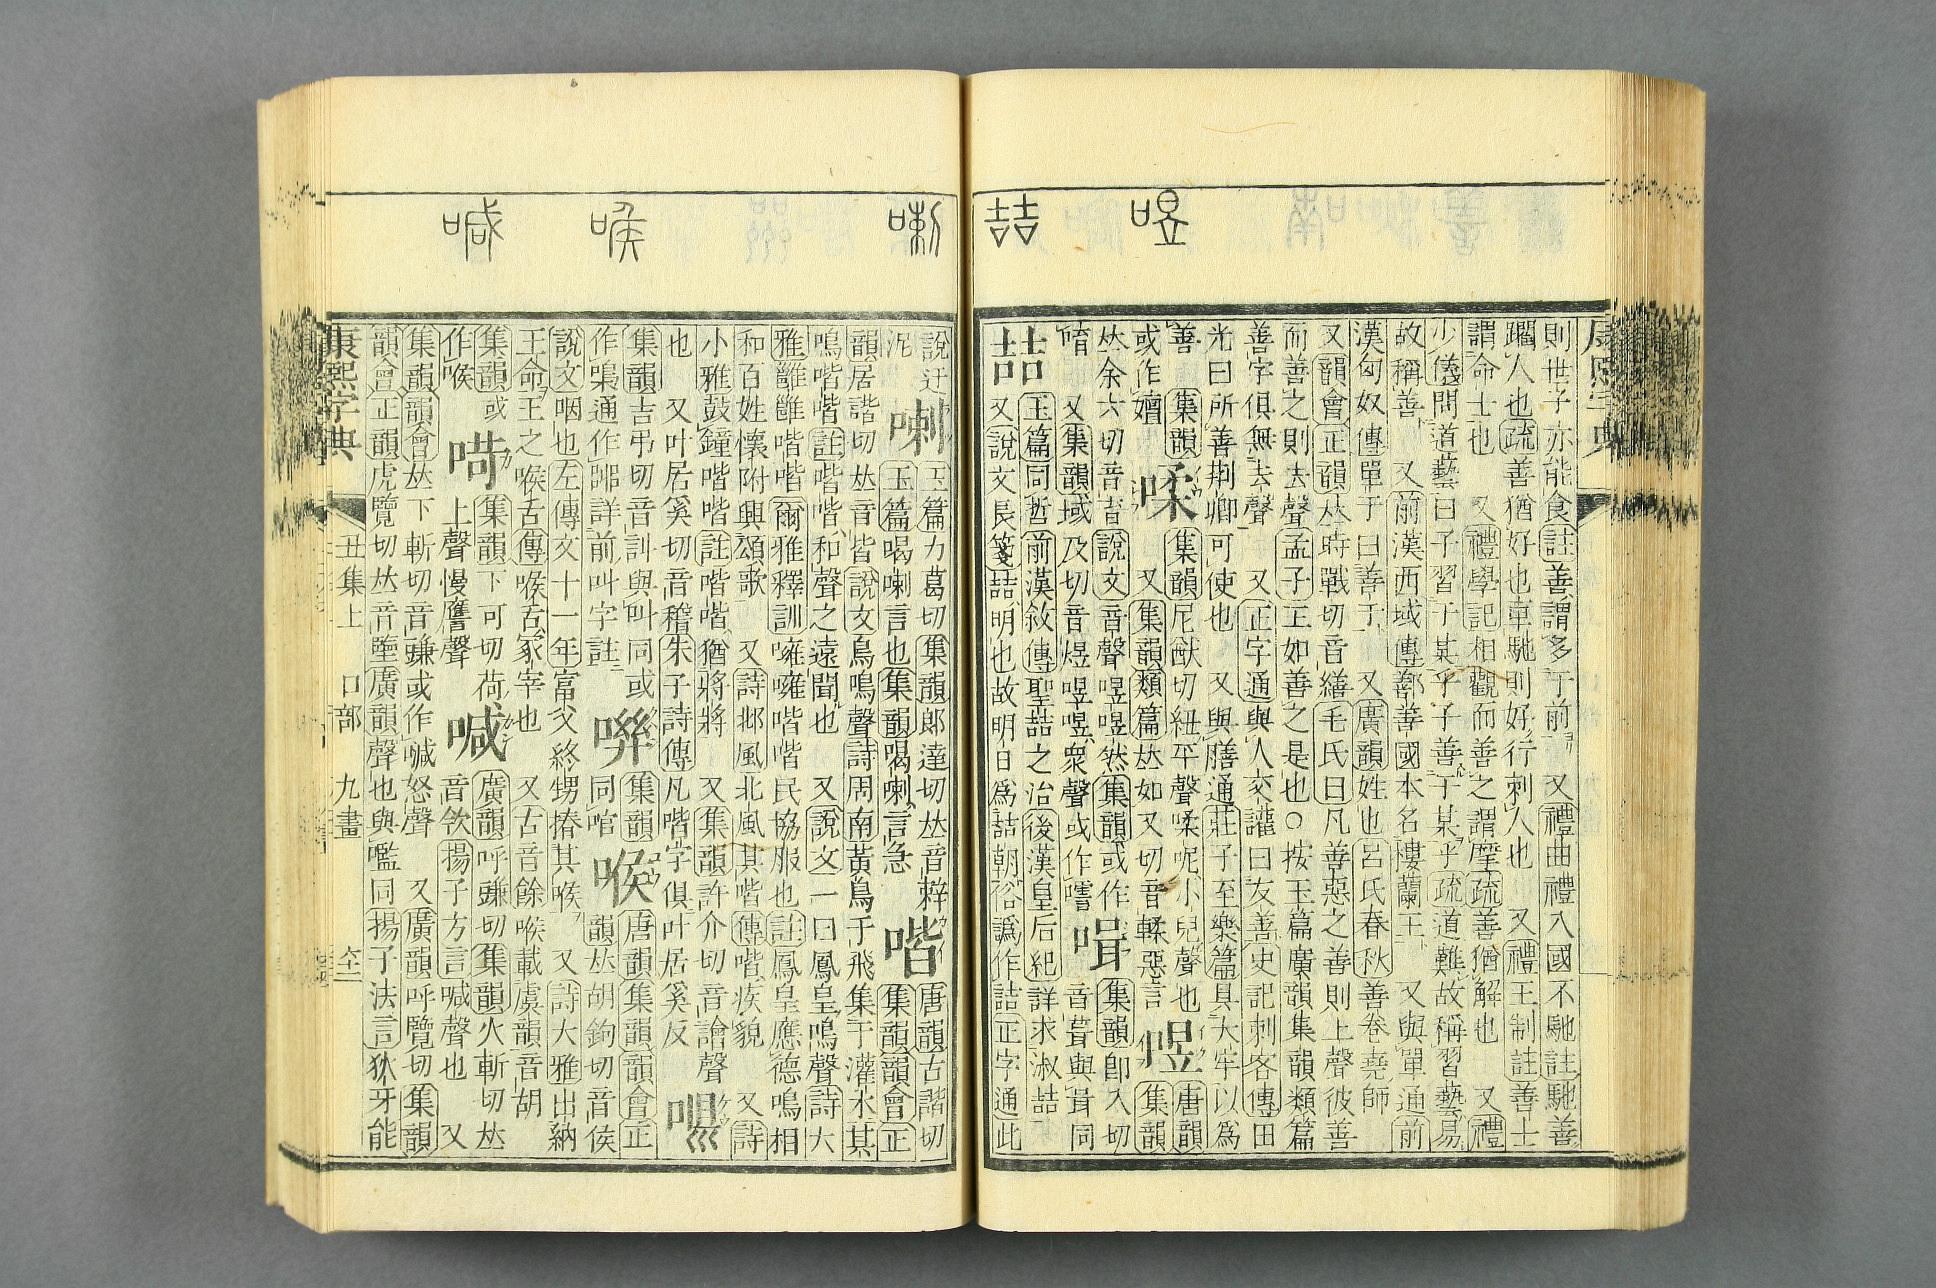 喆 㖶
則世子亦能食註善謂多于前 又禮曲禮入國不馳註馳善
躙人也疏善猶好也車馳則好行刺人也 又禮王制註善士
謂命士也 又禮學記相觀而善之謂摩疏善猶解也 又禮
少儀問道藝曰子習于某乎子善于某乎疏道難故稱習藝易
故稱善 又前漢西域傳鄯善國本名樓蘭王 又與單通前
漢匈奴傳單于曰善于 又廣韻姓也呂氏春秋善卷堯師
又韻會正韻𠀤時戰切音繕毛氏曰凡善惡之善則上聲彼善
而善之則去聲孟子王如善之是也○按玉篇廣韻集韻類篇
善字俱無去聲 又正字通與人交讙曰友善史記刺客傳田
光曰所善荆卿可使也 又與膳通莊子至樂篇具太牢以爲
善 集韻
或作嬗 㖻 集韻尼猷切紐平聲㖻呢小兒聲也
又集韻類篇𠀤如又切音輮惡言 㖶 唐韻
集韻
𠀤余六切音育說文音聲㖶㖶然集韻或作
喅 又集韻域及切音煜㖶㖶衆聲或作嚈 咠 集韻卽入切
音葺與咠同
喆 玉篇同哲前漢敘傳聖喆之治後漢皇后紀詳求淑喆
又說文長箋喆明也故明日爲喆朝俗譌作詰正字通此
喇 喉 喊
說迂
泥 喇 玉篇力葛切集韻郎達切𠀤音辢
玉篇喝喇言也集韻喝喇言急 喈 唐韻古諧切
集韻韻會正
韻居諧切𠀤音皆說文鳥鳴聲詩周南黃鳥于飛集于灌木其
鳴喈喈註喈喈和聲之遠聞也 又說文一曰鳳皇鳴聲詩大
雅雝雝喈喈爾雅釋訓噰噰喈喈民協服也註鳳皇應德鳴相
和百姓懷附興頌歌 又詩邶風北風其喈傳喈疾貌 又詩
小雅鼓鐘喈喈註喈喈猶將將 又集韻許介切音譮聲
也 又叶居奚切音稽朱子詩傳凡喈字俱叶居奚反
集韻吉弔切音訓與叫同或
作嘄通作𧥣詳前叫字註 㗸 集韻
同㖧 喉 唐韻集韻韻會正
韻𠀤胡鉤切音侯
說文咽也左傳文十一年富父終甥摏其喉 又詩大雅出納
王命王之喉舌傳喉舌冢宰也 又古音餘喉載虞韻音胡
集韻或
作㗋 㗇 集韻下可切荷
上聲慢膺聲 喊 廣韻呼豏切集韻火斬切𠀤
音㰹揚子方言喊聲也 又
集韻韻會𠀤下斬切音豏或作喊怒聲 又廣韻呼覽切集韻
韻會正韻虎覽切𠀤音壏廣韻聲也與㘕同揚子法言狄牙能
康熙字典 丑集上 口部 九畫